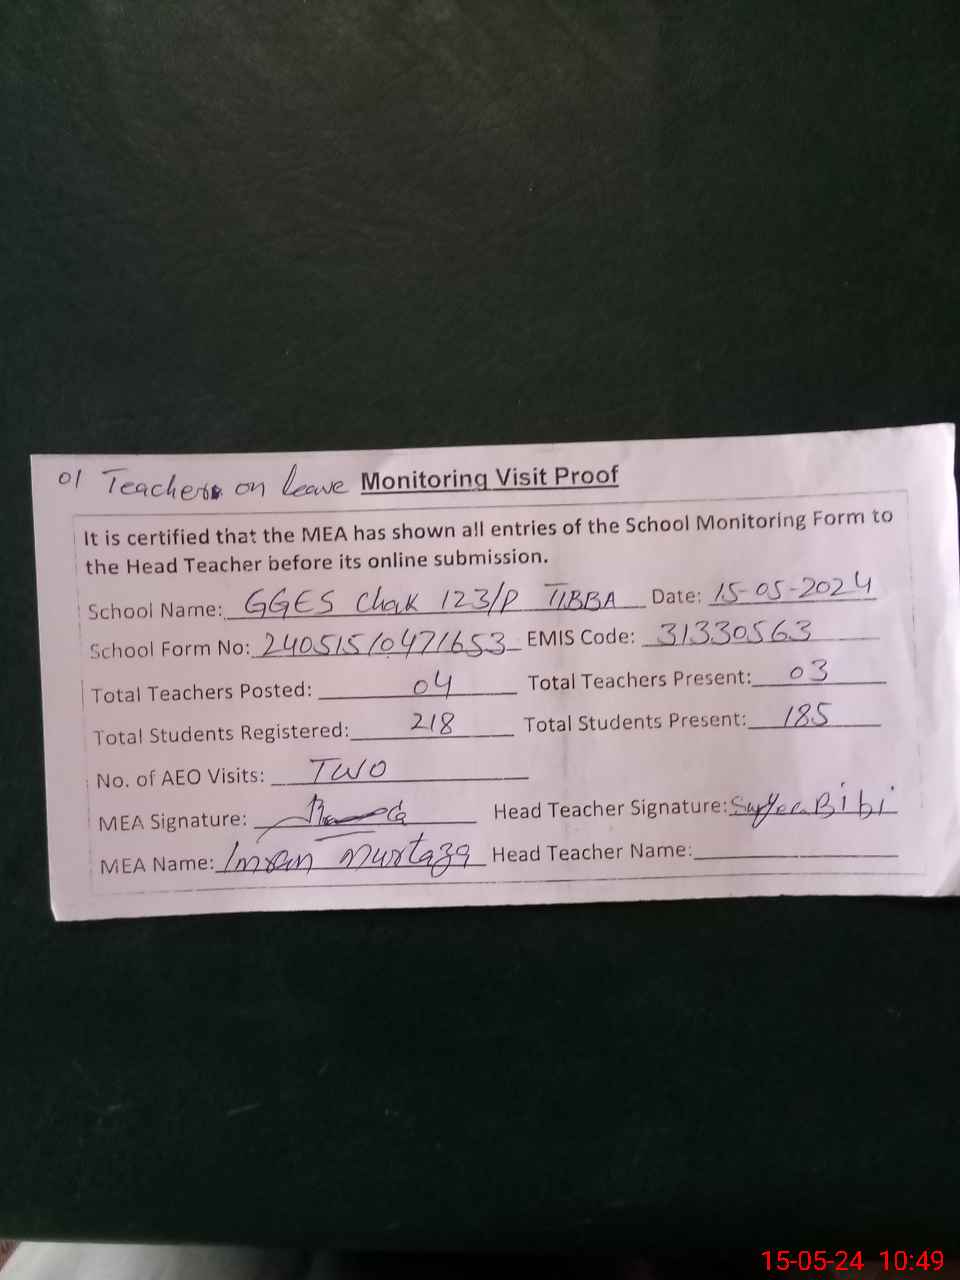 01 Teacher on leave Monitoring Visit Proof
It is certified that the MEA has shown all entries of the School Monitoring Form to
the Head Teacher before its online submission.
School Name: GGES Chak 123/P TIBBA Date: 15-05-2024
School Form No: 24051510471653 EMIS Code: 31330563
Total Teachers Posted: 04 Total Teachers Present: 03
Total Students Registered: 218 Total Students Present: 185
No. of AEO Visits: TWO
MEA Signature: Head Teacher Signature: Bibi
MEA Name: Imran Murtaza Head Teacher Name:
15-05-24 10:49